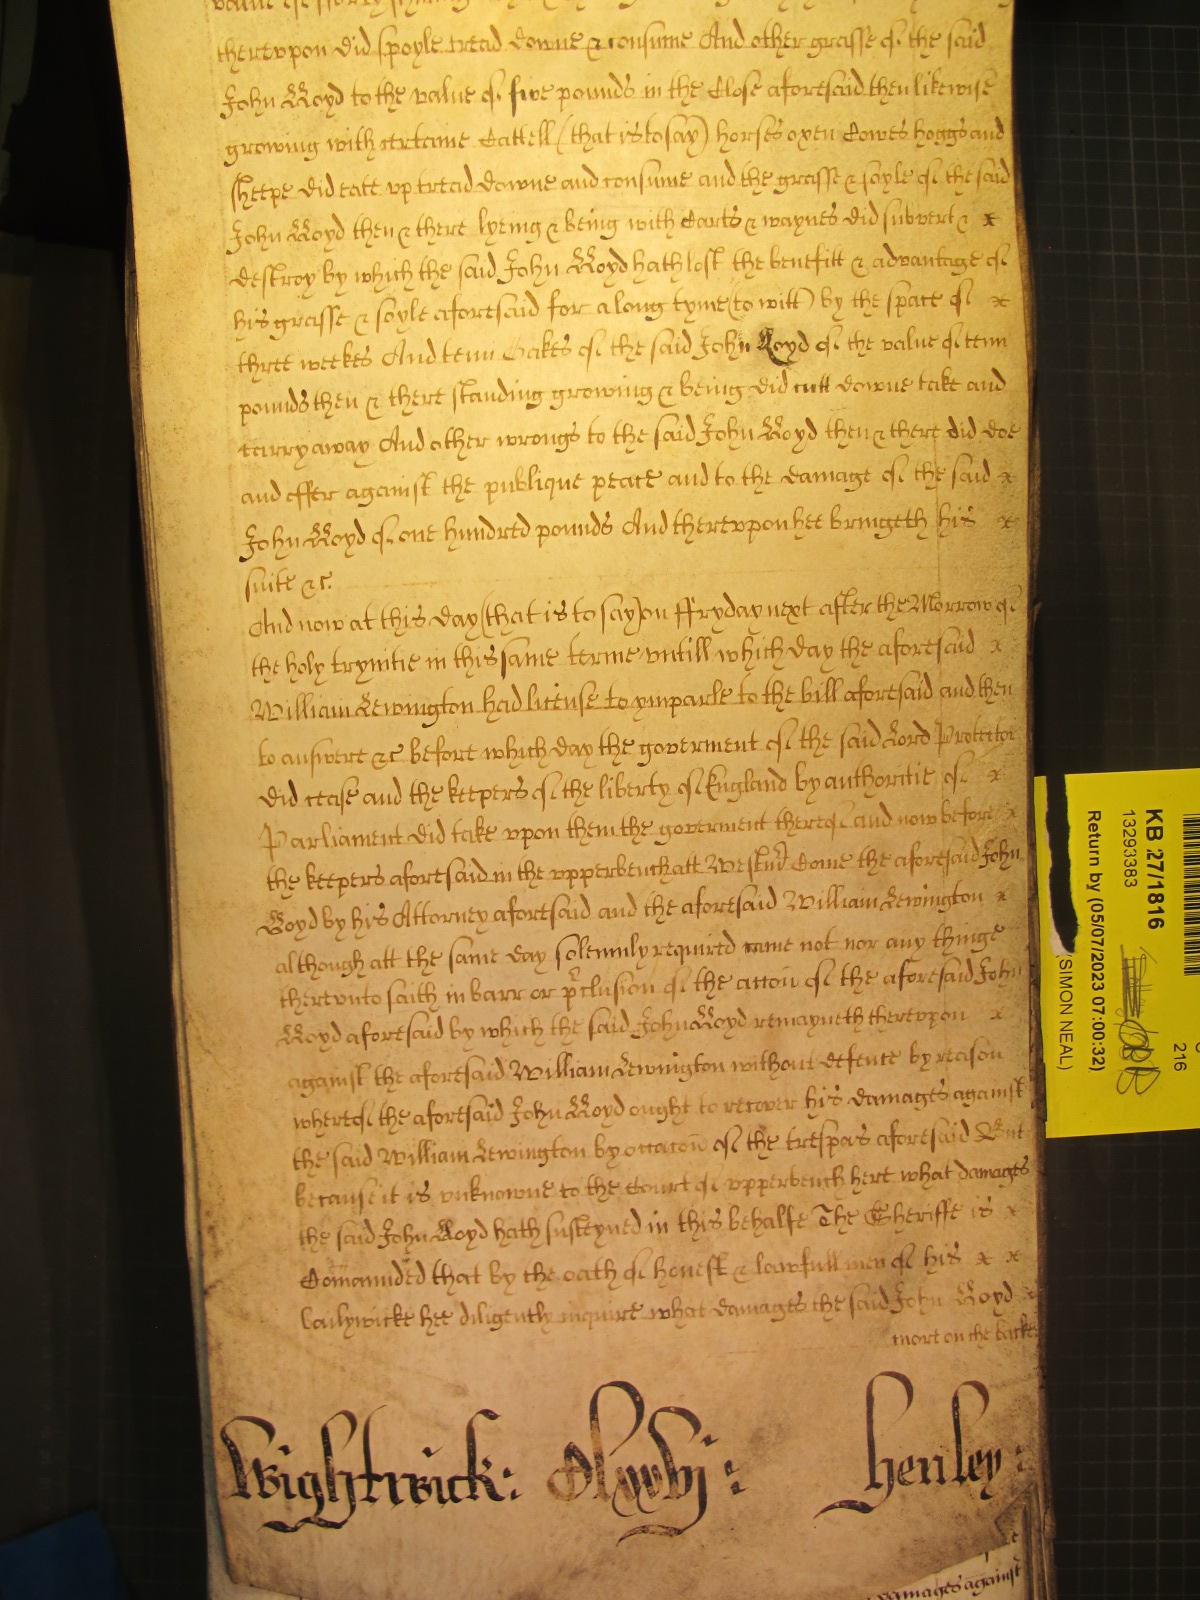 value of forty shillings
therevpon did spoyle tread downe & consume And other grasse of the said
John Lloyd to the value of five pounds in the Close aforesaid then likewise
growing with certaine Cattell (that is to say) horses oxen Cowes hoggs and
sheepe did eate vp tread downe and consume and the grasse & soyle of the said
John Lloyd then & there lyeing & being with Carts & waynes did subvert & x
destroy by which the said John Lloyd hath lost the benefitt & advantage of
his grasse & soyle aforesaid for a long tyme (to witt) by the space of x
three weekes And tenn Oakes of the said John Lloyd of the value of tenn
pounds then & there standing growing & being did cutt downe take and
carry away And other wrongs to the said John Lloyd then & there did doe
and offer against the publique peace and to the damage of the said x
John Lloyd of one hundred pounds And therevpon hee bringeth his x
suite &c.
And now at this day (that is to say) on ffryday next after the Morrow of
the holy trynitie in this same terme vntill which day the aforesaid x
William Lewington had license to ymparle to the bill aforesaid and then
to answere &c before which day the goverment of the said Lord Protector
did cease and the keepers of the liberty of England by authoritie of x
Parliament did take vpon them the goverment thereof and now before x
the keepers aforesaid in the vpperbench att Westmr Come the aforesaid John
Lloyd by his Attorney aforesaid and the aforesaid William Lewington x
although att the same day solemnly required came not nor any thinge
therevnto saith in barr or p'clusion of the accon of the aforesaid John
Lloyd aforesaid by which the said John Lloyd remayneth therevpon x
against the aforesaid William Lewington without defence by reason
whereof the aforesaid John Lloyd ought to recover his damages against
the said William Lewington by occacon of the trespas aforesaid But
because it is vnknowne to the Court of vpperbench here what damages
the said John Lloyd hath susteyned in this behalfe The Sheriffe is x
Comannded that by the oath of honest & lawfull men of his x x
bailywicke hee diligently inquire what damages the said John Lloyd x
more on the backe
Wightwick: Clxxvj: henley:
damages against
KB 27/1816
13293383
Return by (05/07/2023 07:00:32)
(SIMON NEAL)
216